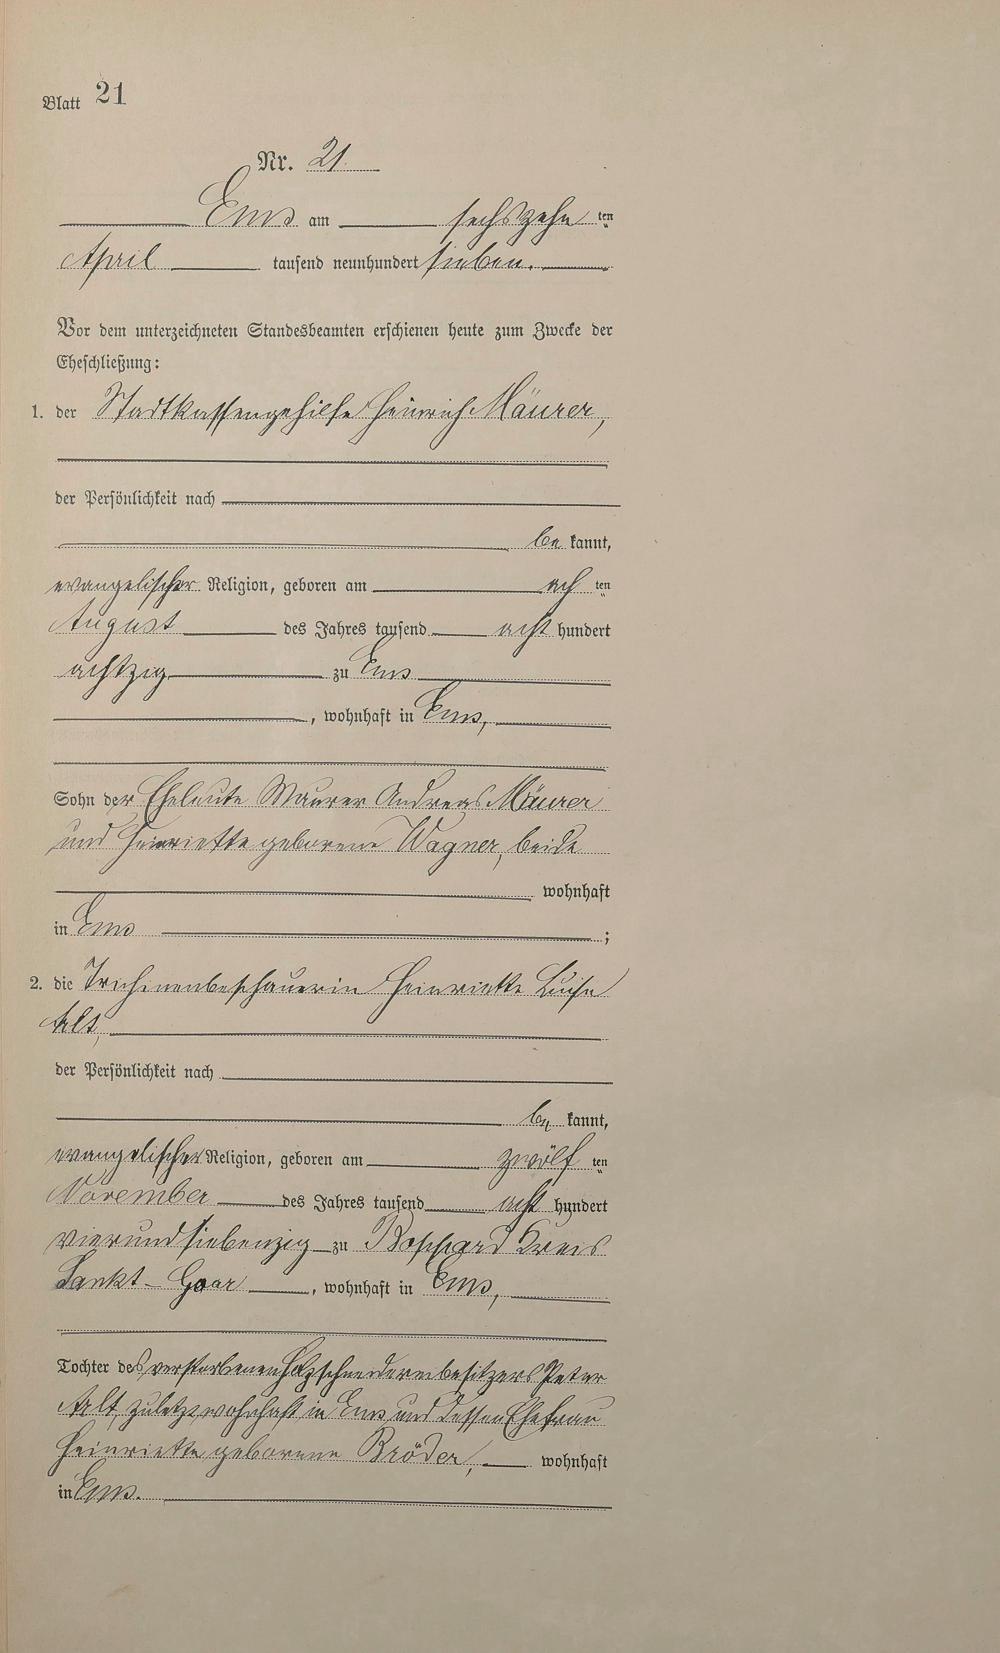 Blatt 21
Nr. 21.
Ems am sechszehn ten
April tausend neunhundert sieben.
Vor dem unterzeichneten Standesbeamten erschienen heute zum Zwecke der
Eheschließung:
1. der Stadtkassengehilfe Heinrich Mäurer,
der Persönlichkeit nach
be kannt,
evangelischer Religion, geboren am ach ten
August des Jahres tausend acht hundert
achtzig zu Ems
, wohnhaft in Ems,
Sohn der Eheleute Maurer Andreas Mäurer
und Henriette geborene Wagner, beide
wohnhaft
in Ems ;
2. die Trichinenbeschauerin Henriette Luise
Alt,
der Persönlichkeit nach
be kannt,
evangelischer Religion, geboren am zwölf ten
November des Jahres tausend acht hundert
vierundsiebenzig zu Boppard Kreis
Sankt-Goar, wohnhaft in Ems,
Tochter des verstorbenen Holzschneidereibesitzers Peter
Alt, zuletzt wohnhaft in Ems und dessen Ehefrau
Henriette geborene Bröder, wohnhaft
in Ems.